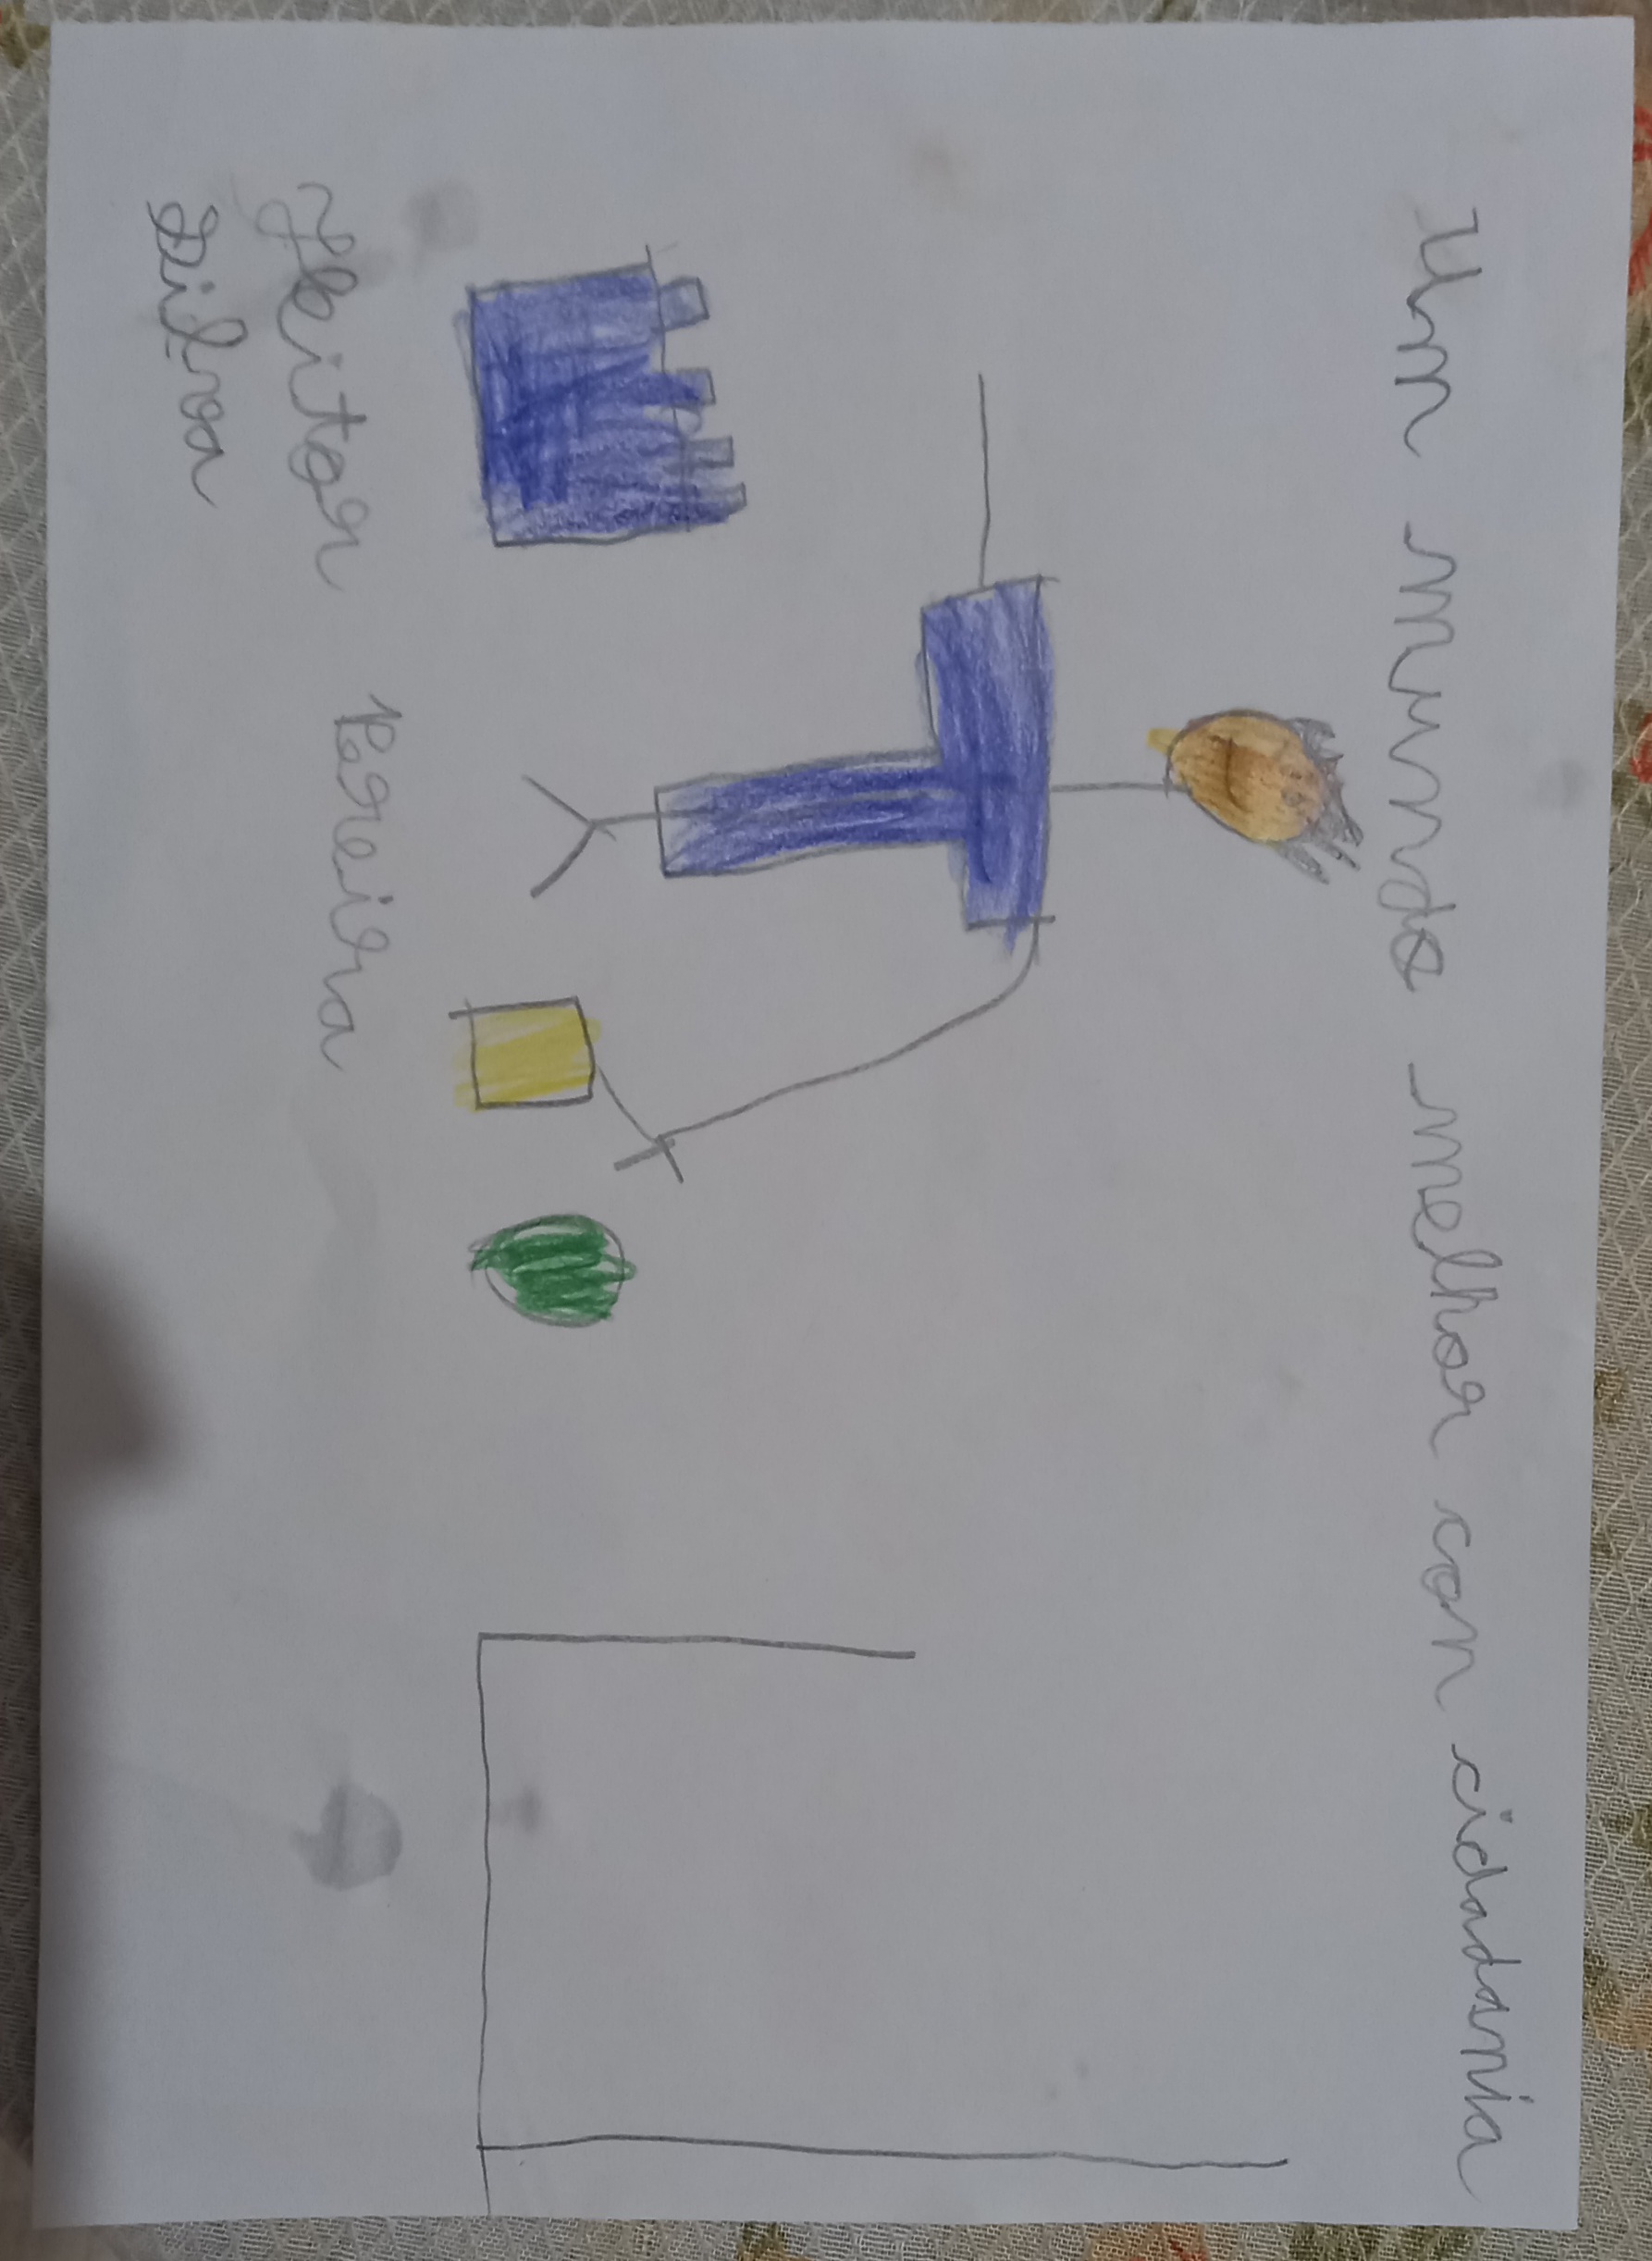 Um mundo melhor con cidadania
Heitor Pereira
Silva